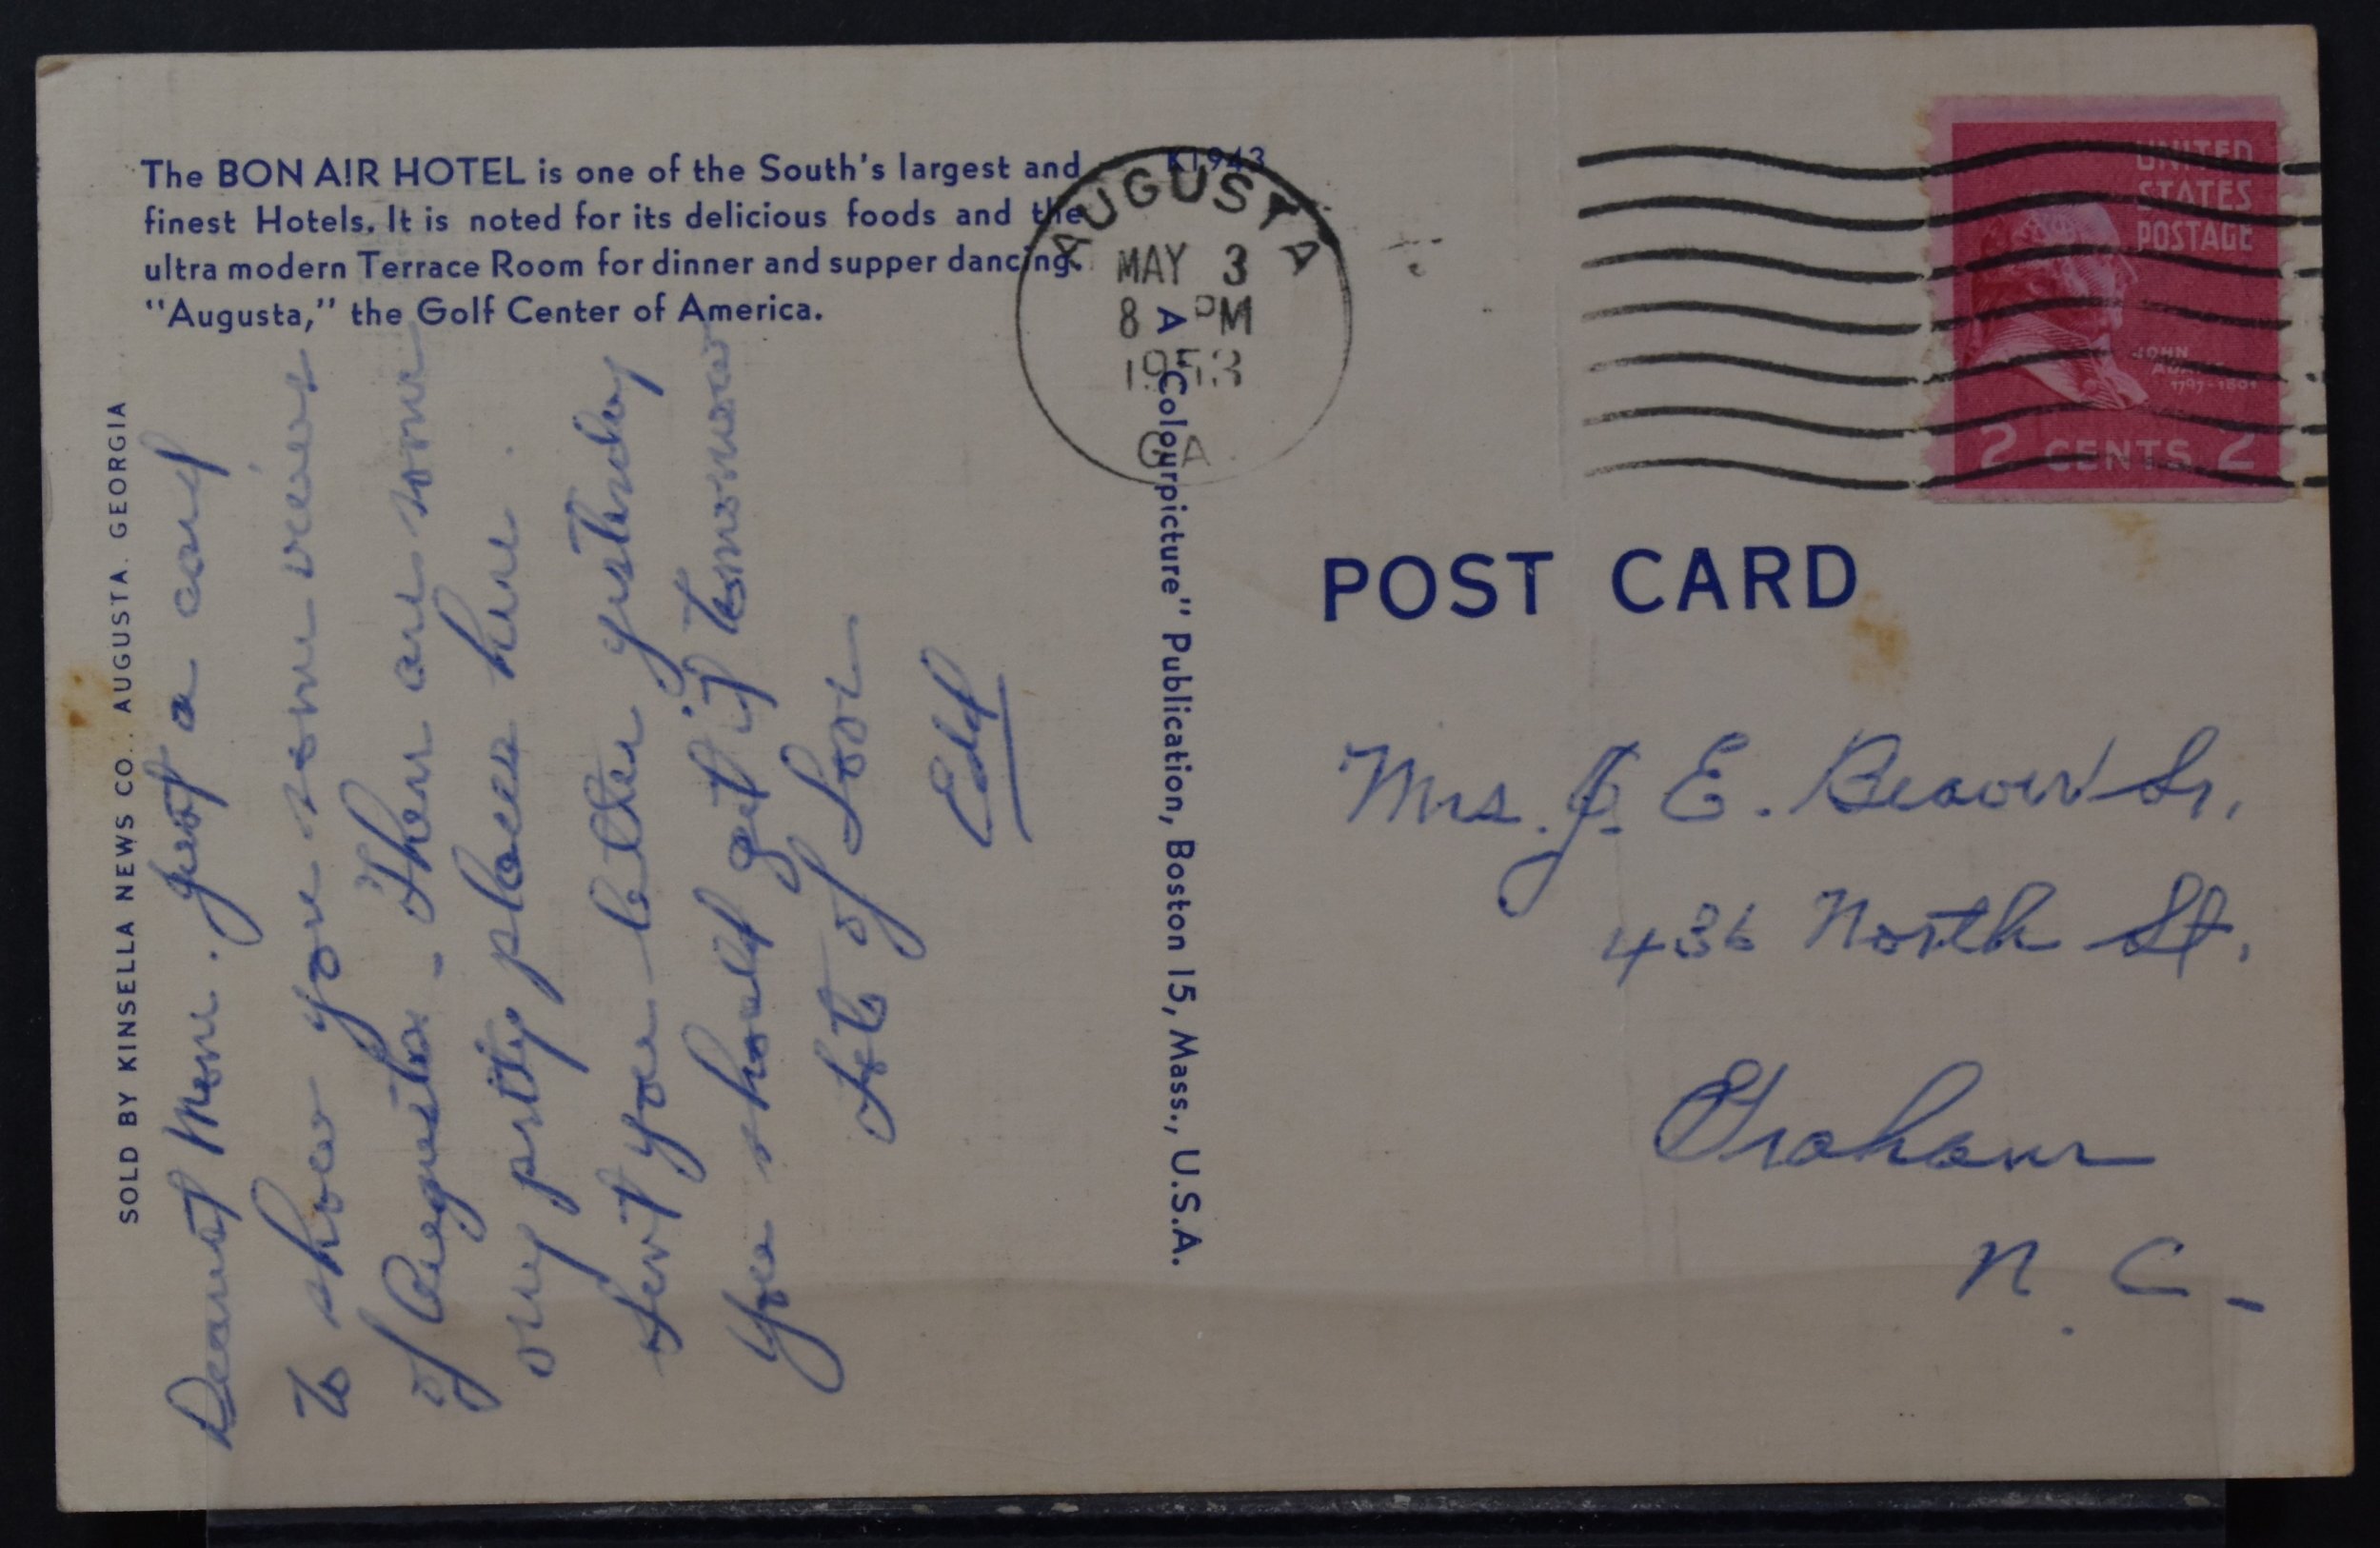 The BON AIR HOTEL is one of the South's largest and
finest Hotels. It is noted for its delicious foods and the
ultra modern Terrace Room for dinner and supper dancing.
"Augusta," the Golf Center of America.
K1943
SOLD BY KINSELLA NEWS CO., AUGUSTA, GEORGIA
Dearest Mom. Just a card
to show you some views
of Augusta - There are some
very pretty places here.
Sent you letter yesterday
You should get it tomorrow
Lots of Love
Edd
A "Colourpicture" Publication, Boston 15, Mass., U.S.A.
AUGUSTA
MAY 3
8 PM
1953
GA.
UNITED
STATES
POSTAGE
JOHN
ADAMS
1797-1801
2 CENTS 2
POST CARD
Mrs. J. E. Beaver Sr.
436 North St.
Graham
N. C.